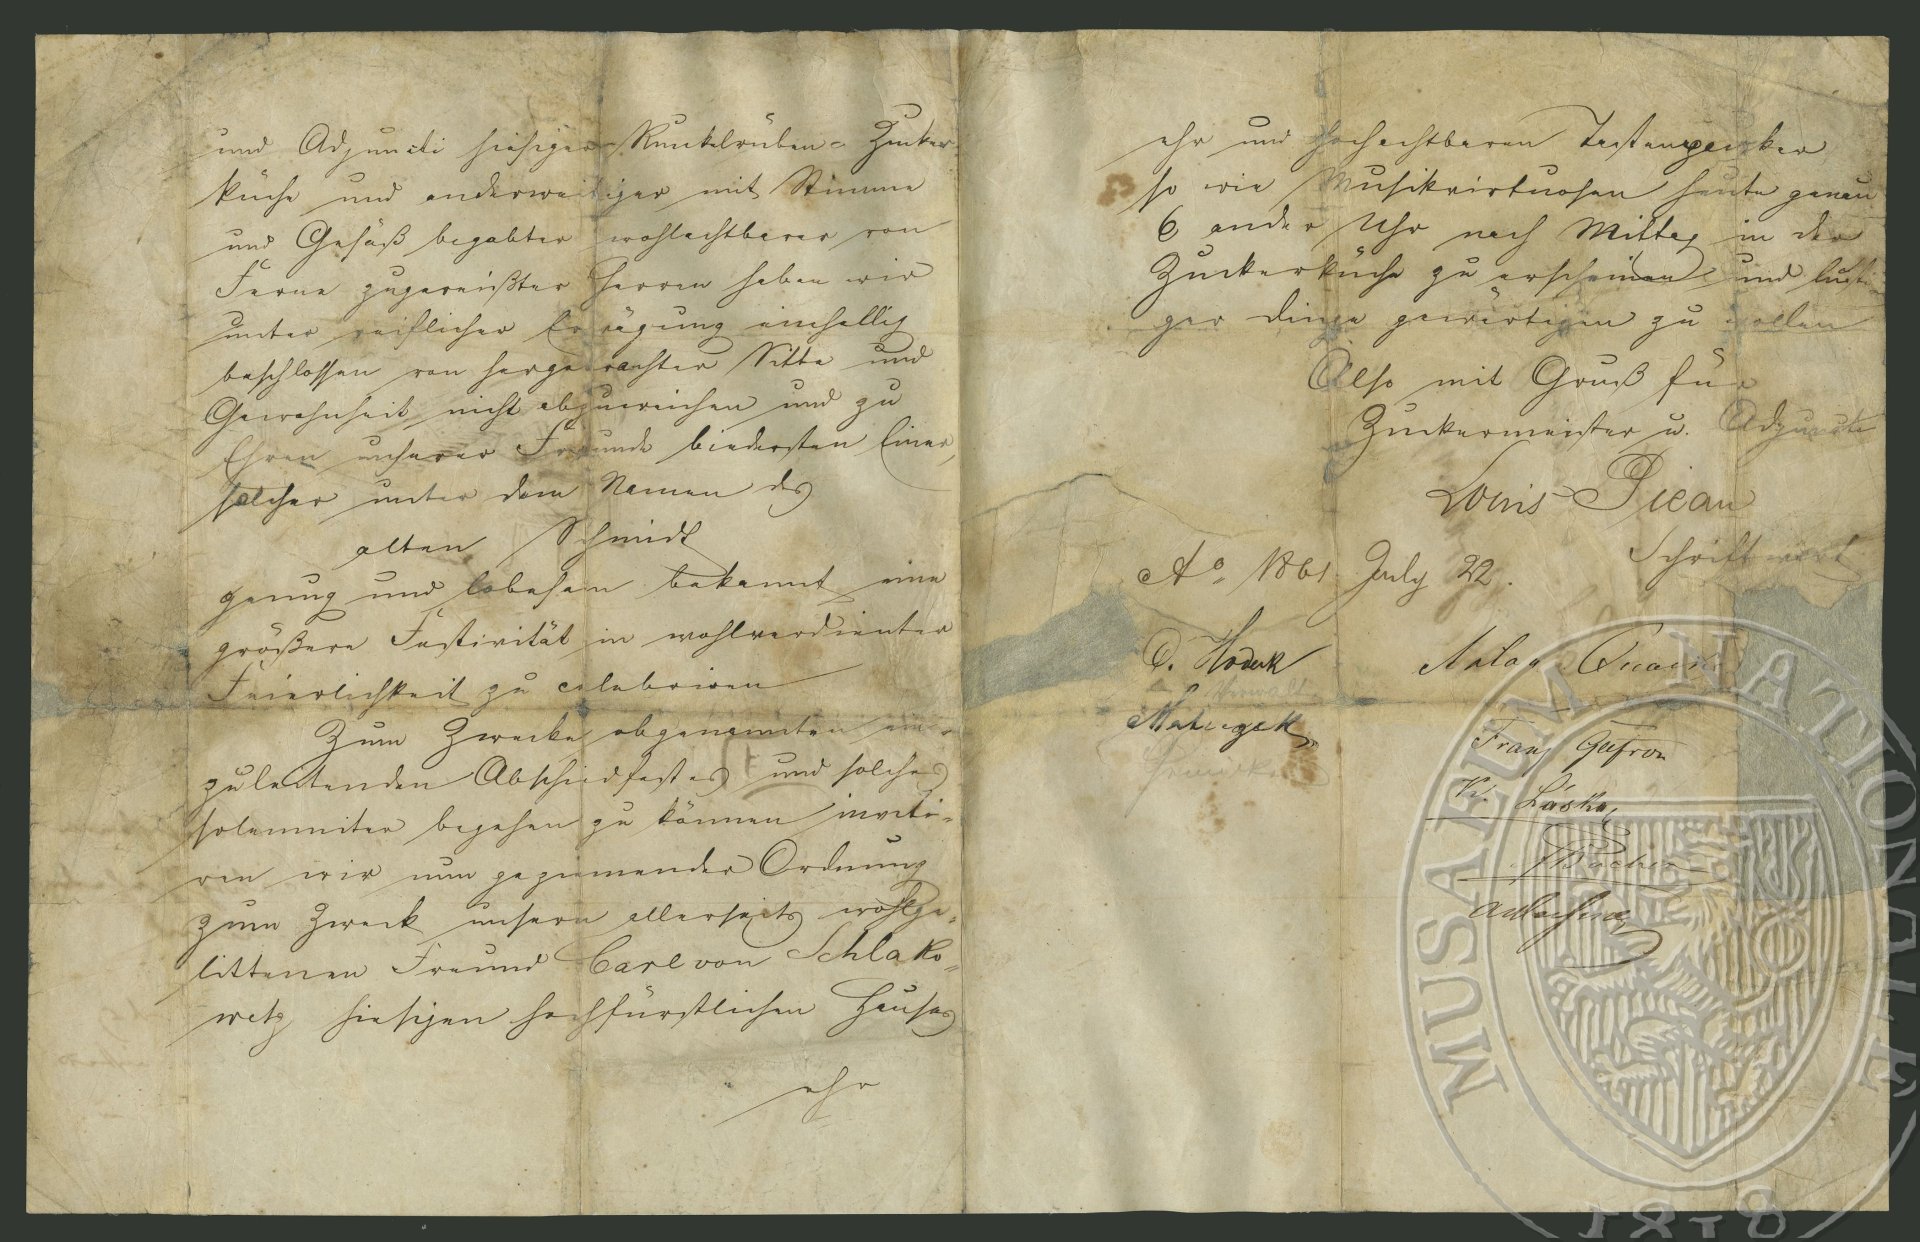 und Adjuncti hiesiger Runkelrüben-Zucker-
küche und anderweitiger mit Stimme
und Gesäß begabter wohlachtbarer von
Ferne zugereißter Herren haben wir
unter reiflicher Erwägung einhellig
beschlossen von hergebrachter Sitte und
Gewohnheit nicht abzuweichen und zu
Ehren unserer Freunde biedersten Einer,
solcher unter dem Namen des
alten Schmidt
genug und lobesam bekannt eine
größere Festivität in wohlverdienter
Feierlichkeit zu celebriren
Zum Zwecke obgenannten ein-
zuleitenden Abschiedfestes und solches
solemniter begehen zu können inviti-
ren wir nun geziemender Ordnung
zum Zweck unsern allerseits wohlge-
littenen Freund Carl von Schlako-
wetz hiesigen hochfürstlichen Hauses
ehr
ehr und hochachtbaren Tastenzwicker
so wie Musikvirtuosen heute genau
6 ander Uhr nach Mittag in der
Zuckerküche zu erscheinen und lusti-
ger dinge gewärtigen zu wollen
Also mit Gruß für
Zuckermeister u. Adjuncte
Louis Picau
Schriftwart
Ao 1861 July 22.
C. Hodek
Verwalt.
Matiegek
Franz Gafron
K. Láska
MUSAEUM NATIONALE
1818